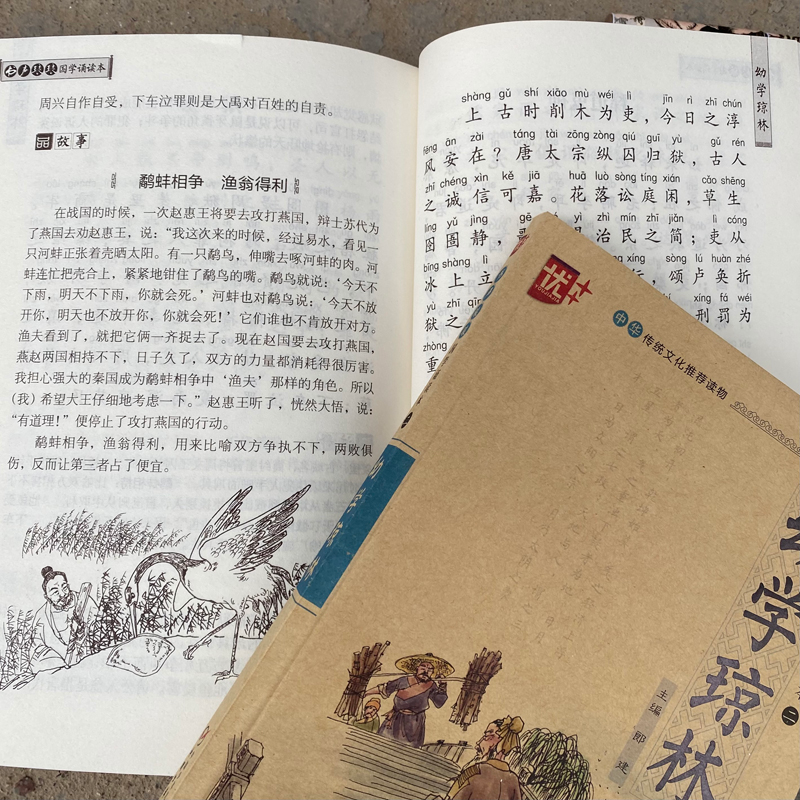 国学诵读本
周兴自作自受，下车泣罪则是大禹对百姓的自责。
品故事
鹬蚌相争 渔翁得利
在战国的时候，一次赵惠王将要去攻打燕国，辩士苏代为
了燕国去劝赵惠王，说：“我这次来的时候，经过易水，看见一
只河蚌正张着壳晒太阳。有一只鹬鸟，伸嘴去啄河蚌的肉。河
蚌连忙把壳合上，紧紧地钳住了鹬鸟的嘴。鹬鸟就说：‘今天不
下雨，明天不下雨，你就会死。’河蚌也对鹬鸟说：‘今天不放
开你，明天也不放开你，你就会死！’它们谁也不肯放开对方。
渔夫看到了，就把它俩一齐捉去了。现在赵国要去攻打燕国，
燕赵两国相持不下，日子久了，双方的力量都消耗得很厉害。
我担心强大的秦国成为鹬蚌相争中‘渔夫’那样的角色。所以
（我）希望大王仔细地考虑一下。”赵惠王听了，恍然大悟，说：
“有道理！”便停止了攻打燕国的行动。
鹬蚌相争，渔翁得利，用来比喻双方争执不下，两败俱
伤，反而让第三者占了便宜。
幼学琼林
shàng gǔ shí xiāo mù wéi lì jīn rì zhī chún
上古时削木为吏，今日之淳
fēng ān zài táng tài zōng zòng qiú guī yù gǔ rén
风安在？唐太宗纵囚归狱，古人
zhī chéng xìn kě jiā huā luò sòng tíng xián cǎo shēng
之诚信可嘉。花落讼庭闲，草生
líng yǔ jìng gē yì shì zhì mín zhī jiǎn lì cóng
囹圄静，歌 治民之简；吏从
bīng shàng lì xíng sòng lú huàn zhé
冰上立 行，颂卢奂折
yù zhī xíng fá wéi
狱之 刑罚为
zhòng
重
优
中华传统文化推荐读物
幼学琼林
二
主编 郎建